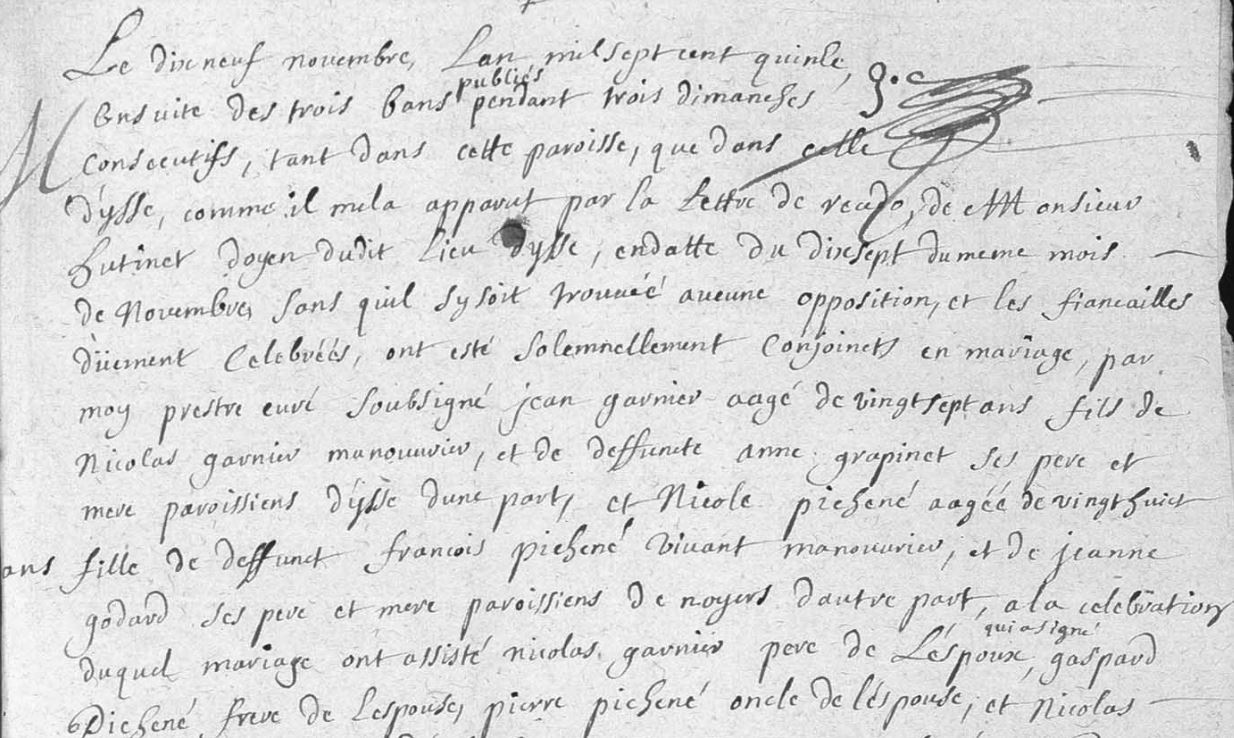 Le dixneuf novembre, Lan mil sept cent quinse,
M
Ensuite des trois bans publiés pendant trois dimanches
consecutifs, tant dans cette paroisse, que dans celle
d'ysse, comme il mela apparut par la Lettre de recedo, de Monsieur
hutinet doyen dudit Lieu dysse, endatte du dixsept du meme mois
de Novembre, sans quil sy soit trouvéé aucune opposition, et les fiancailles
düement Celebréés, ont esté solemnellement Conjoincts en mariage, par
moy prestre curé soubsigné jean garnier aagé de vingt sept ans fils de
Nicolas garnier manouvrier, et de deffuncte anne grapinet ses pere et
mere paroissiens d'ysse dune part, et Nicole pichené aagéé de vingt huict
ans fille de deffunct francois pichené vivant manouvrier, et de jeanne
godard ses pere et mere paroissiens de noyers dautre part, a la celebration
duquel mariage ont assisté nicolas garnier pere de Léspoux, qui a signé gaspard
Pichené frere de Lespouse, pierre pichené oncle de léspouse, et Nicolas